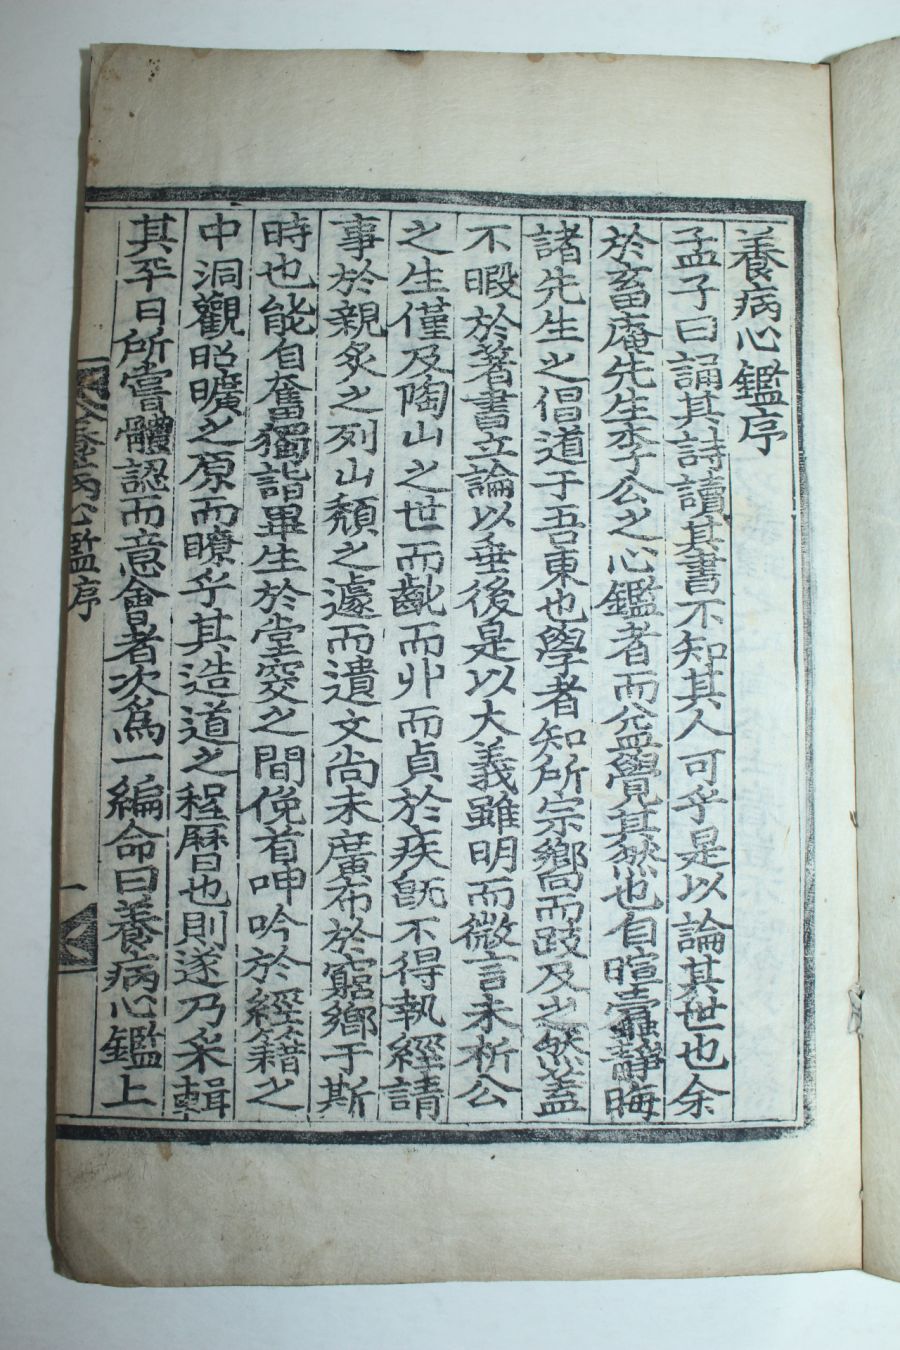 養病心鑑序
孟子曰誦其詩讀其書不知其人可乎是以論其世也余
於畜庵先生李公之心鑑者而益覺其然也自暄蠹靜晦
諸先生之倡道于吾東也學者知所宗鄕而跂及之然蓋
不暇於著書立論以垂後是以大義雖明而微言未析公
之生僅及陶山之世而齔而丱而貞於疾旣不得執經請
事於親炙之列山頹之遽而遺文尙未廣布於窮鄕于斯
時也能自奮獨詣畢生於堂穾之間俛首呻吟於經籍之
中洞觀昭曠之原而瞭乎其造道之程曆也則遂乃采輯
其平日所嘗體認而意會者次爲一編命曰養病心鑑上
養病心鑑序
一